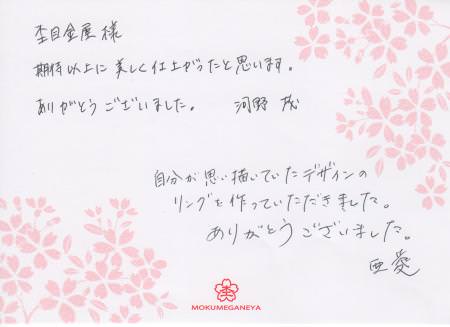 杢目金屋様
期待以上に美しく仕上がったと思います。
ありがとうございました。 河野 茂
自分が思い描いていたデザインの
リングを作っていただきました。
ありがとうございました。
亜愛
MOKUMEGANEYA